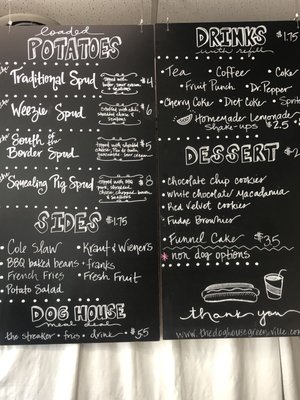 loaded
POTATOES
the Traditional Spud $4
the Weezie Spud $6
the South of the
Border Spud $5
the Squealing Pig Spud $8
SIDES $1.75
• Cole Slaw
• Kraut & Wieners
• BBQ baked beans
• franks
• French Fries
• Fresh Fruit
• Potato Salad
DOG HOUSE
meal deal
the streaker • fries • drink
DRINKS $1.75
with refill
• Tea • Coffee • Coke
• Fruit Punch • Dr. Pepper
• Cherry Coke • Diet Coke • Sprit
Homemade Lemonade
shake-ups $2.5
DESSERT $2
• Chocolate Chip Cookies
• White Chocolate Macadamia
• Red Velvet Cookies
• Fudge Brownies
• Funnel Cake $3.5
* non dog options
thank you
www.thedoghousegreenville.com